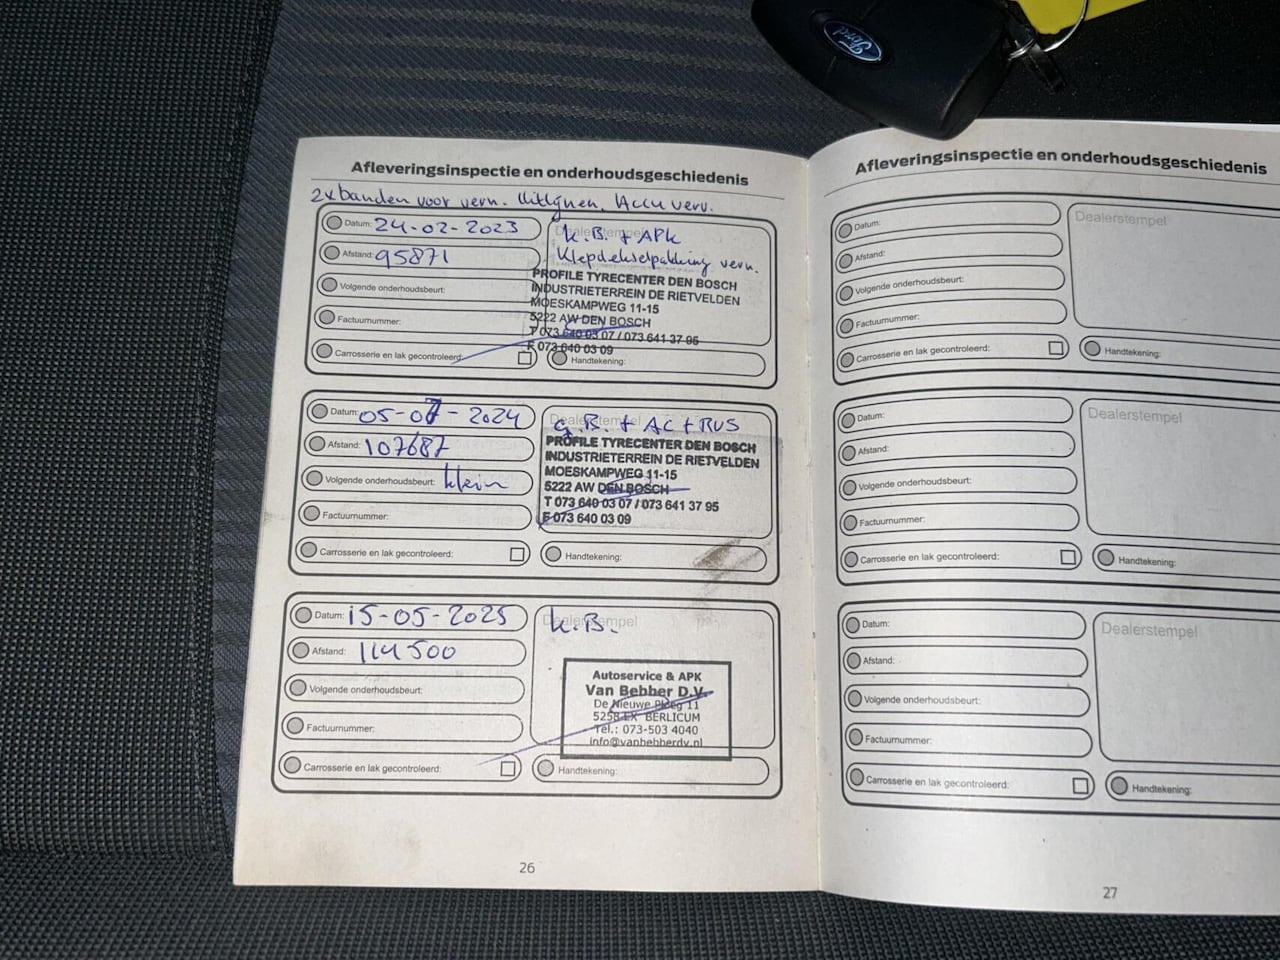 Ford
Afleveringsinspectie en onderhoudsgeschiedenis
2x banden voor verv. Uitlijnen. Accu verv.
Datum: 24-02-2023
Afstand: 95871
Volgende onderhoudsbeurt:
Factuurnummer:
Carrosserie en lak gecontroleerd:
Dealerstempel
K.B. + APK
Klepdekselpakking verv.
PROFILE TYRECENTER DEN BOSCH
INDUSTRIETERREIN DE RIETVELDEN
MOESKAMPWEG 11-15
5222 AW DEN BOSCH
T 073 640 03 07 / 073 641 37 95
F 073 640 03 09
Handtekening:
Datum: 05-07-2024
Afstand: 107687
Volgende onderhoudsbeurt: klein
Factuurnummer:
Carrosserie en lak gecontroleerd:
Dealerstempel
G.B. + AC + RVS
PROFILE TYRECENTER DEN BOSCH
INDUSTRIETERREIN DE RIETVELDEN
MOESKAMPWEG 11-15
5222 AW DEN BOSCH
T 073 640 03 07 / 073 641 37 95
F 073 640 03 09
Handtekening:
Datum: 15-05-2025
Afstand: 114500
Volgende onderhoudsbeurt:
Factuurnummer:
Carrosserie en lak gecontroleerd:
Dealerstempel
K.B.
Autoservice & APK
Van Bebber D.V.
De Nieuwe Ploeg 11
5258 EX BERLICUM
Tel.: 073-503 4040
info@vanbebberdv.nl
Handtekening:
26
Afleveringsinspectie en onderhoudsgeschiedenis
Datum:
Afstand:
Volgende onderhoudsbeurt:
Factuurnummer:
Carrosserie en lak gecontroleerd:
Dealerstempel
Handtekening:
Datum:
Afstand:
Volgende onderhoudsbeurt:
Factuurnummer:
Carrosserie en lak gecontroleerd:
Dealerstempel
Handtekening:
Datum:
Afstand:
Volgende onderhoudsbeurt:
Factuurnummer:
Carrosserie en lak gecontroleerd:
Dealerstempel
Handtekening:
27